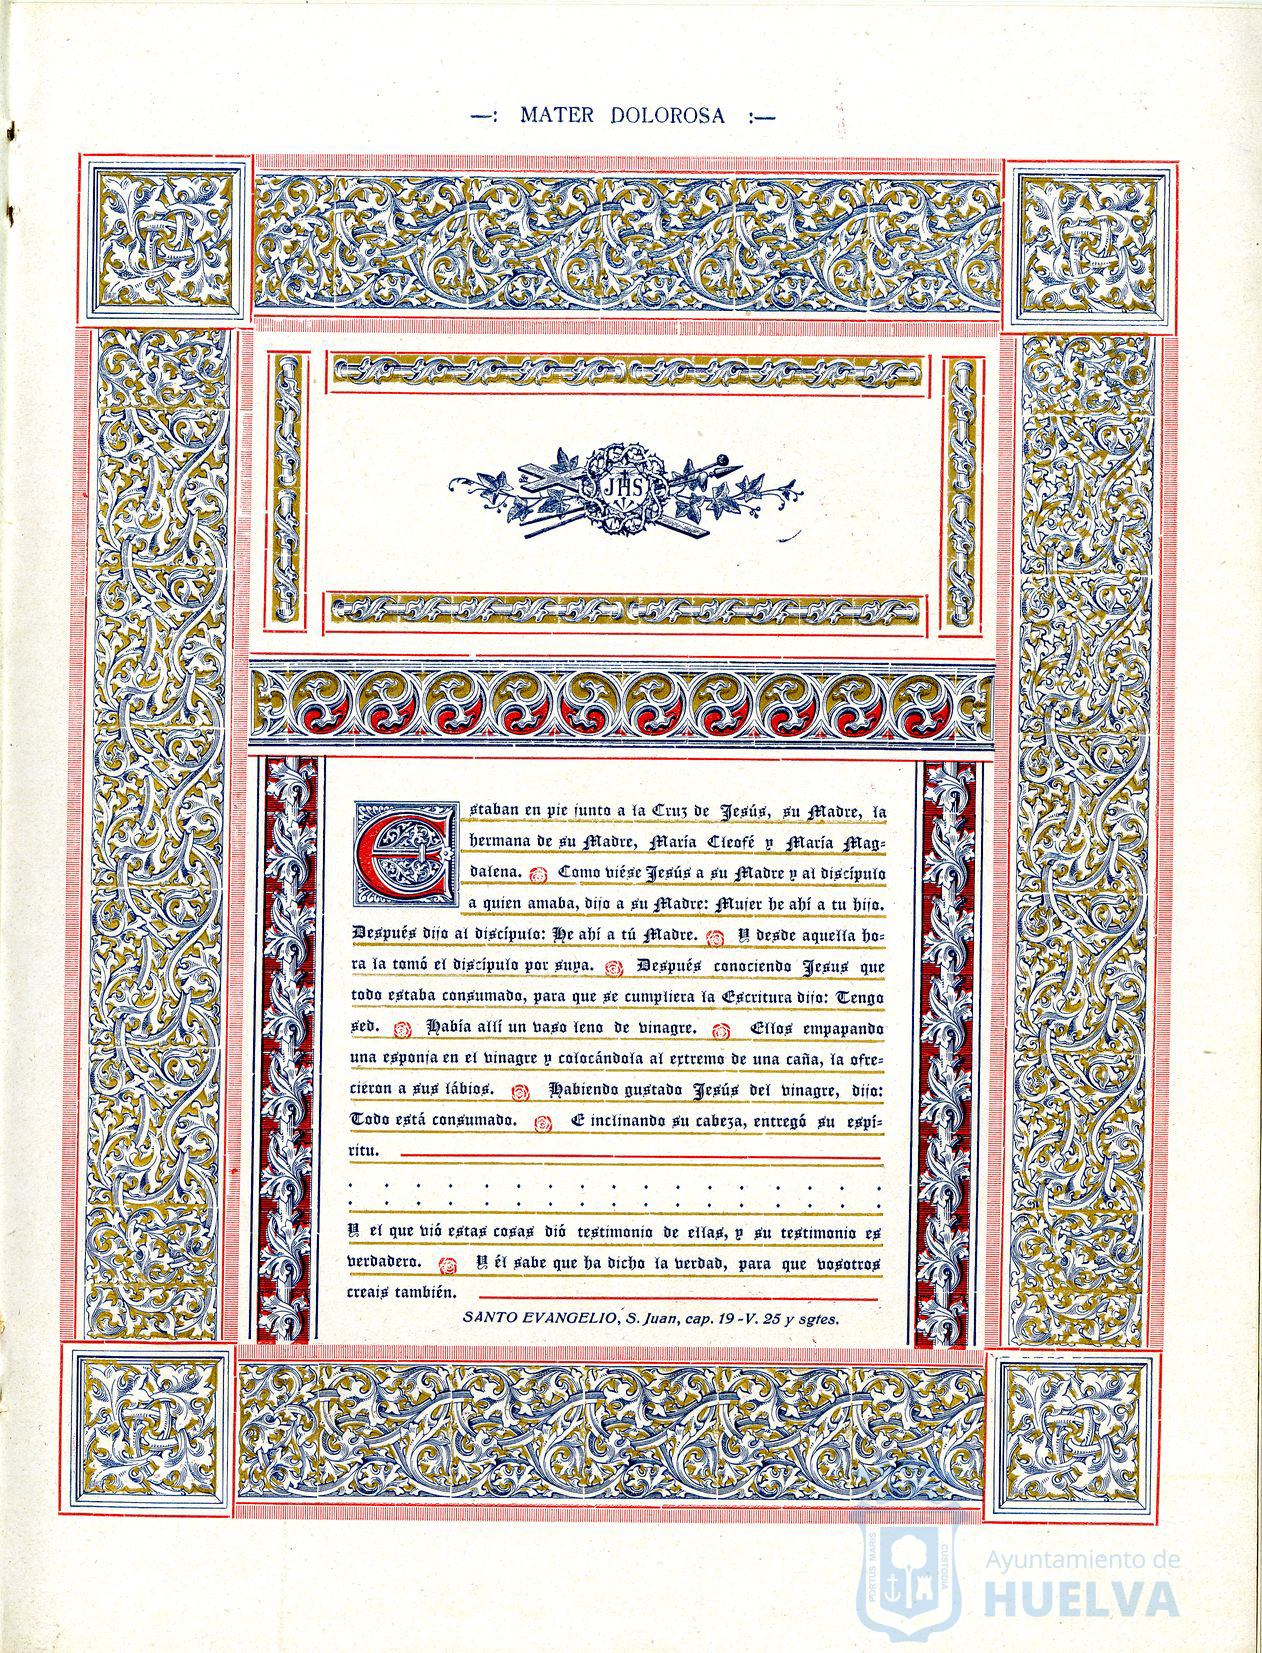 —: MATER DOLOROSA :—
JHS
Estaban en pie junto a la Cruz de Jesús, su Madre, la
hermana de su Madre, María Cleofé y María Mag=
dalena. Como viése Jesús a su Madre y al discípulo
a quien amaba, dijo a su Madre: Mujer he ahí a tu hijo.
Después dijo al discípulo: He ahí a tú Madre. Y desde aquella ho=
ra la tomó el discípulo por suya. Después conociendo Jesus que
todo estaba consumado, para que se cumpliera la Escritura dijo: Tengo
sed. Había allí un vaso leno de vinagre. Ellos empapando
una esponja en el vinagre y colocándola al extremo de una caña, la ofre=
cieron a sus lábios. Habiendo gustado Jesús del vinagre, dijo:
Todo está consumado. E inclinando su cabeza, entregó su espí=
ritu.
. . . . . . . . . . . . . . . . .
. . . . . . . . . . . . . . . . .
Y el que vió estas cosas dió testimonio de ellas, y su testimonio es
verdadero. Y él sabe que ha dicho la verdad, para que vosotros
creais también.
SANTO EVANGELIO, S. Juan, cap. 19 - V. 25 y sgtes.
PORTUS MARIS
CUSTODIA
Ayuntamiento de
HUELVA